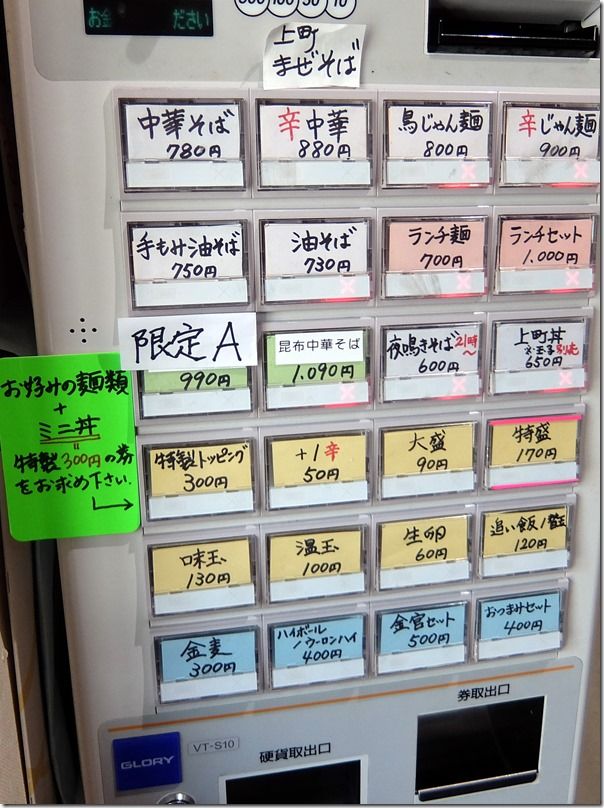 お金 ださい
500 100 50 10
上町
まぜそば
中華そば
780円
辛中華
880円
鳥じゃん麺
800円
辛じゃん麺
900円
手もみ油そば
750円
油そば
730円
ランチ麺
700円
ランチセット
1.000円
限定A
990円
昆布中華そば
1.090円
夜鳴きそば 21時〜
600円
上町丼
※玉子別売
650円
お好みの麺類
+
ミニ丼
"
特製300円の券
をお求め下さい.
特製トッピング
300円
+1辛
50円
大盛
90円
特盛
170円
味玉
130円
温玉
100円
生卵
60円
追い飯1替玉
120円
金麦
300円
ハイボール
/ウーロンハイ
400円
金宮セット
500円
おつまみセット
400円
券取出口
硬貨取出口
GLORY
VT-S10